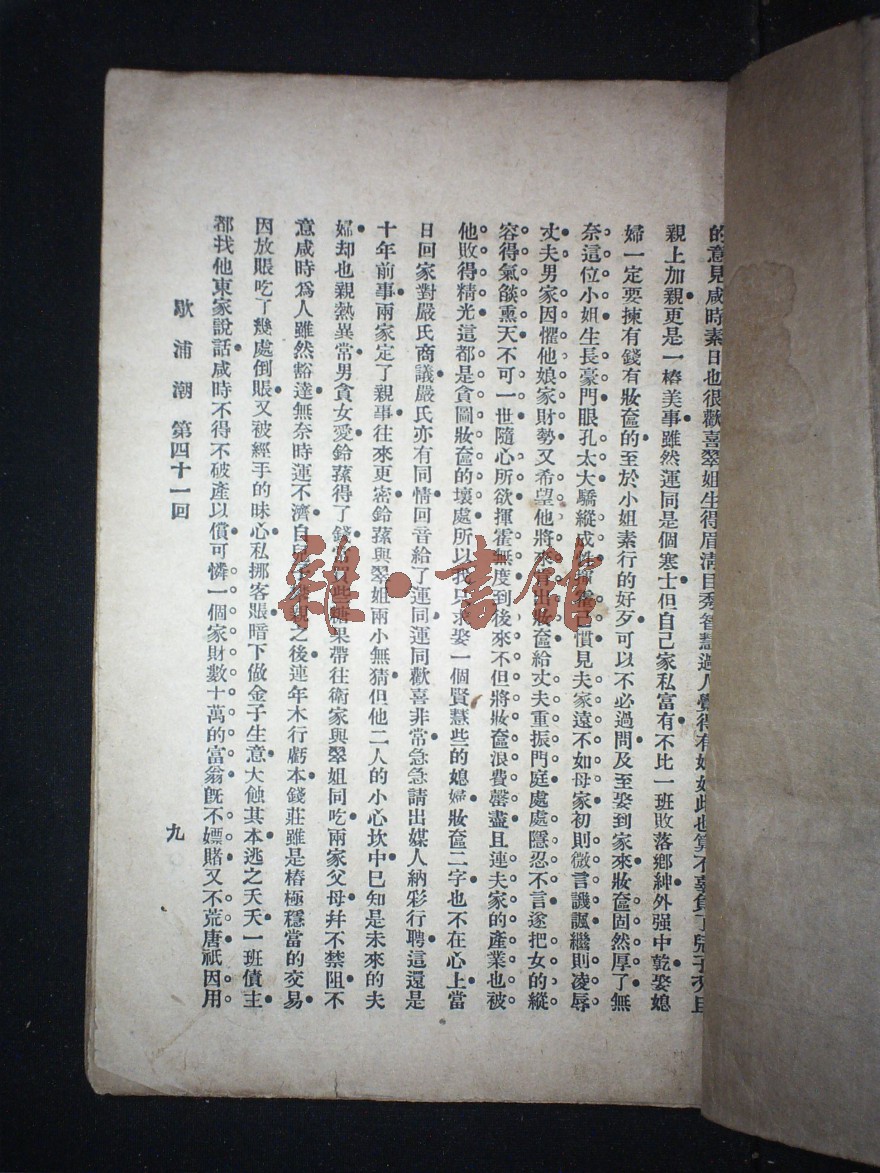 的意見咸時素日也很歡喜翠姐生得眉清目秀智慧過人覺得有媳如此也算不辜負了兒子況且
親上加親更是一樁美事雖然運同是個寒士但自己家私富有不比一班敗落鄉紳外强中乾娶媳
婦一定要揀有錢有妝奩的至於小姐素行的好歹可以不必過問及至娶到家來妝奩固然厚了無
奈這位小姐生長豪門眼孔太大驕縱成性揮霍已慣見夫家遠不如母家初則微言譏諷繼則凌辱
丈夫男家因懼他娘家財勢又希望他將來拿出妝奩給丈夫重振門庭處處隱忍不言遂把女的縱
容得氣燄熏天不可一世隨心所欲揮霍無度到後來不但將妝奩浪費罄盡且連夫家的產業也被
他敗得精光這都是貪圖妝奩的壞處所以我只求娶一個賢慧些的媳婦妝奩二字也不在心上當
日回家對嚴氏商議嚴氏亦有同情回音給了運同運同歡喜非常急急請出媒人納彩行聘這還是
十年前事兩家定了親事往來更密鈴蓀與翠姐兩小無猜但他二人的小心坎中已知是未來的夫
婦却也親熱異常男貪女愛鈴蓀得了錢常以些糖果帶往衛家與翠姐同吃兩家父母幷不禁阻不
意咸時爲人雖然豁達無奈時運不濟自兒子定親之後連年木行虧本錢莊雖是樁極穩當的交易
因放賬吃了幾處倒賬又被經手的昧心私挪客賬暗下做金子生意大蝕其本逃之夭夭一班債主
都找他東家說話咸時不得不破產以償可憐一個家財數十萬的富翁旣不嫖賭又不荒唐祇因用
歇浦潮 第四十一回
九
雜·書館